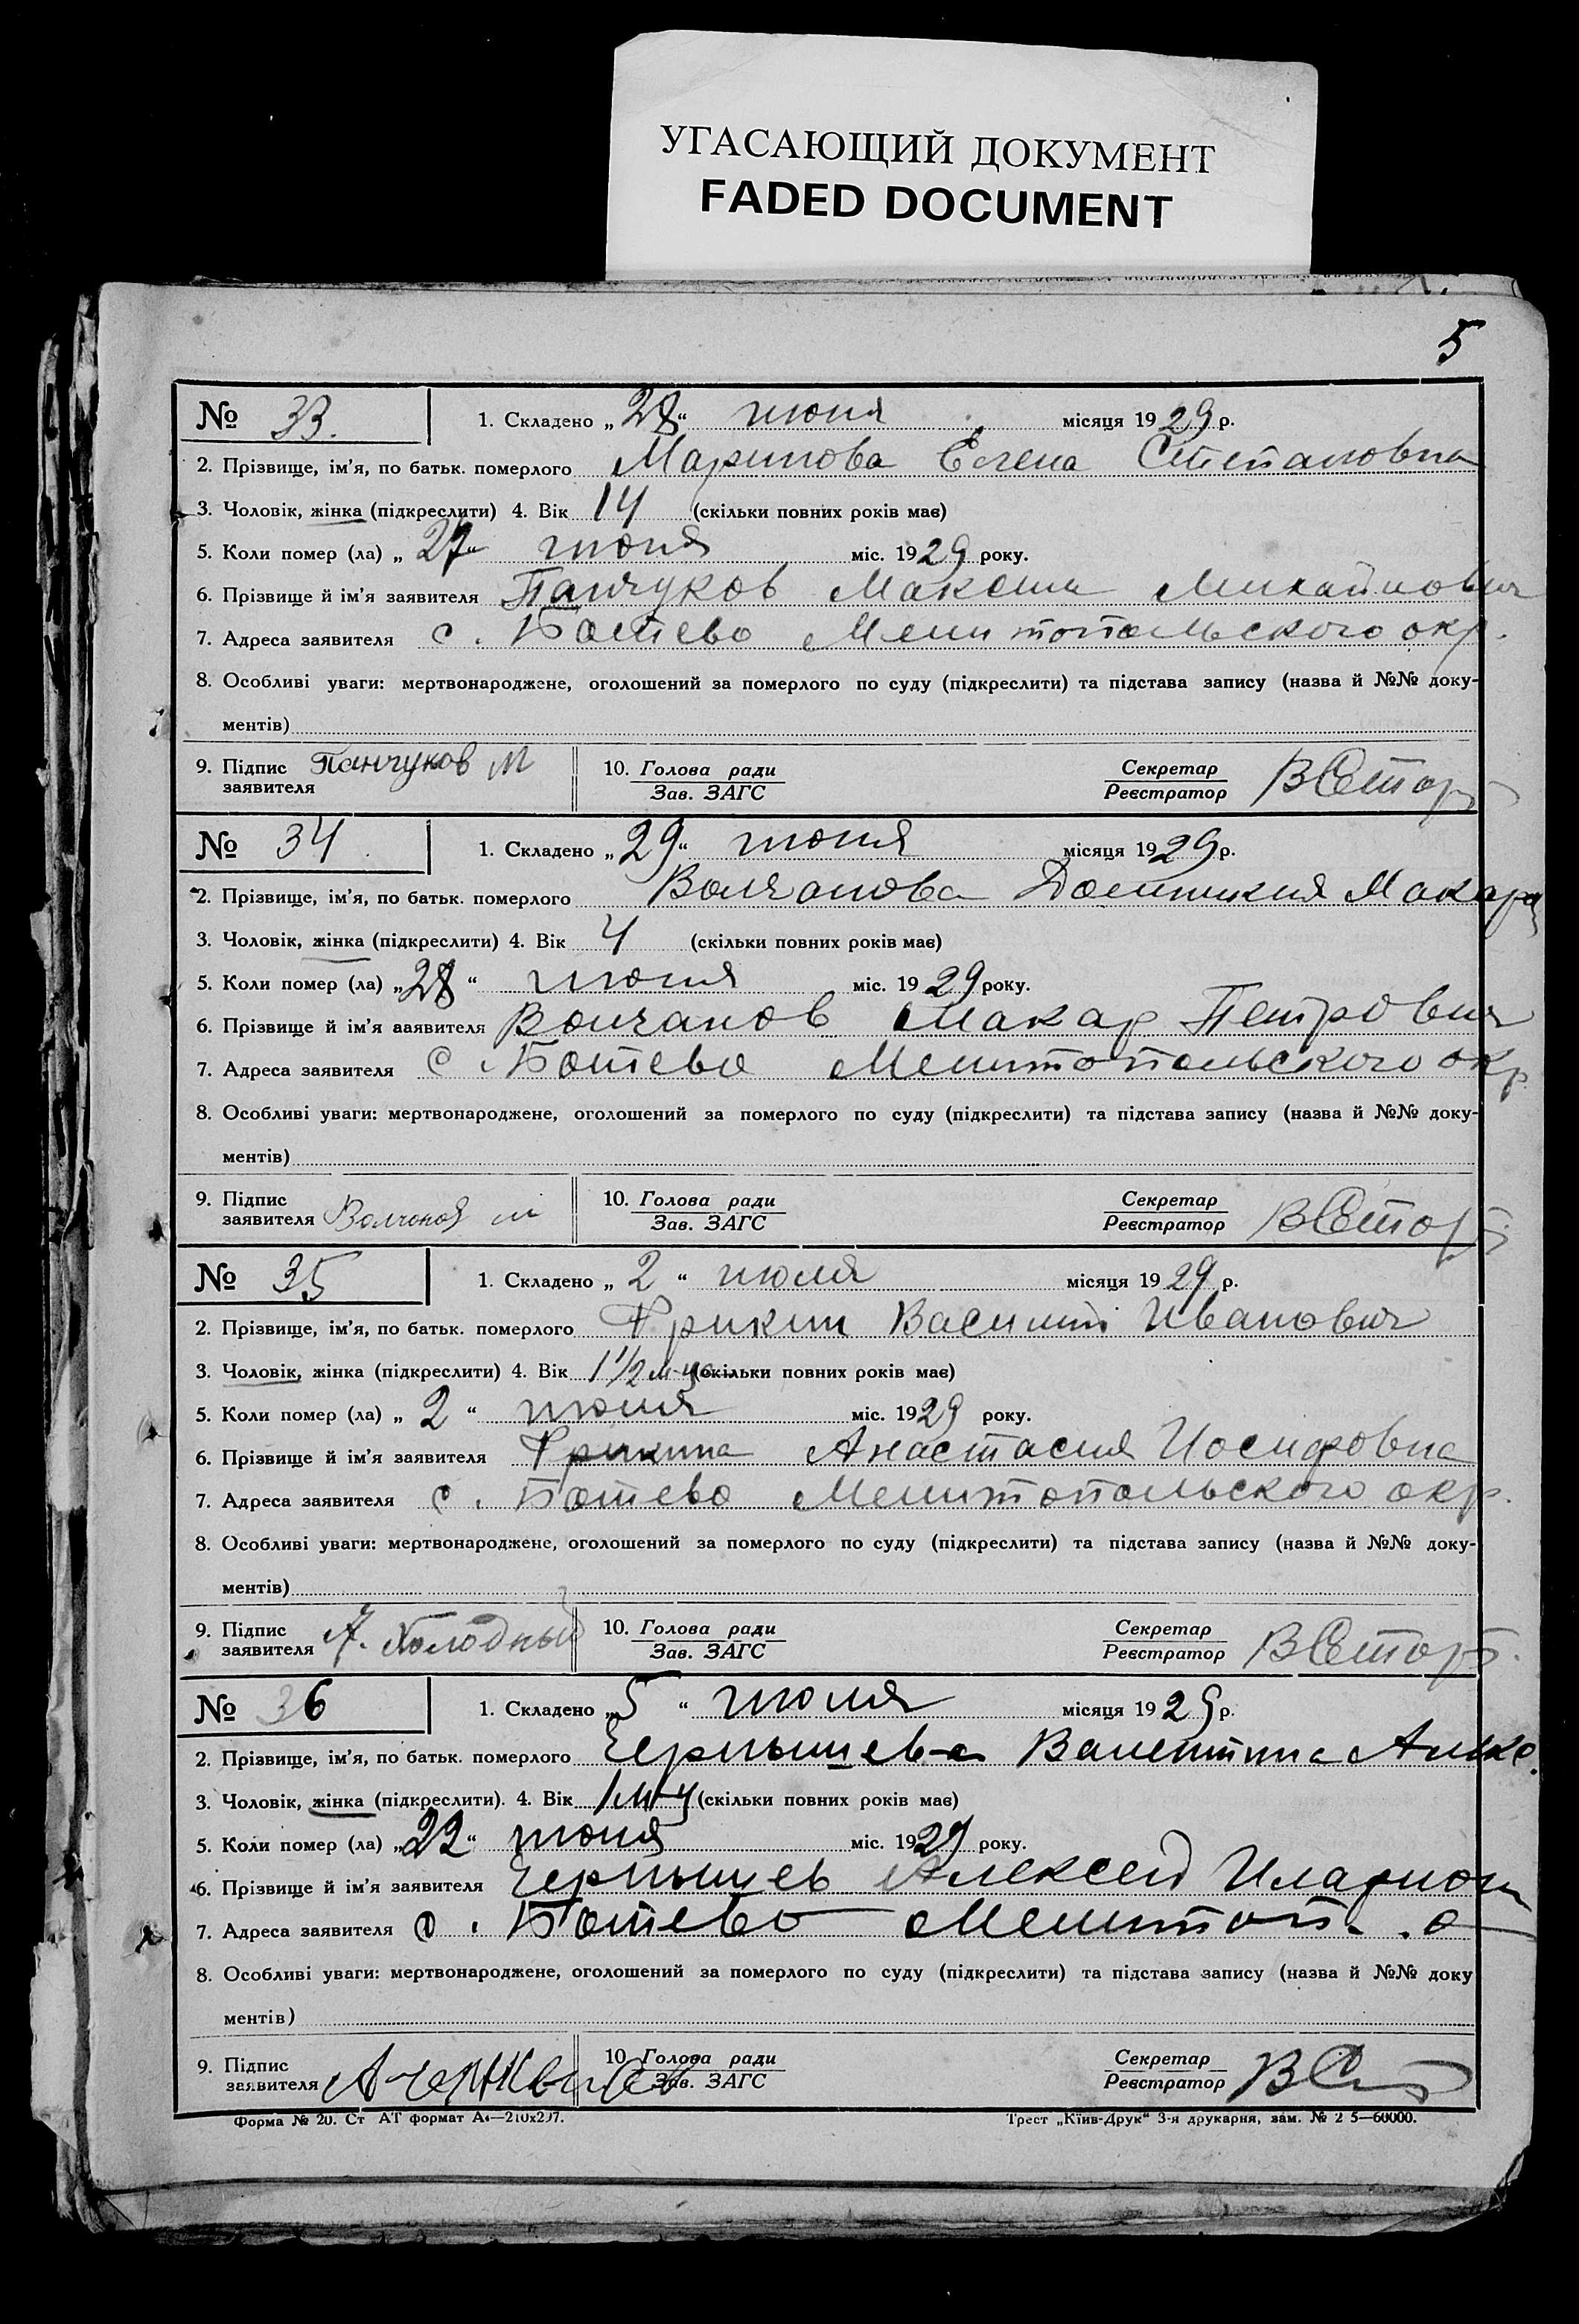 УГАСАЮЩИЙ ДОКУМЕНТ
FADED DOCUMENT
5
№ 33. 1. Складено „28“ июня місяця 1929 р.
2. Прізвище, ім'я, по батьк. померлого Маринова Елена Степановна
3. Чоловік, жінка (підкреслити) 4. Вік 14 (скільки повних років має)
5. Коли помер (ла) „27“ июня міс. 1929 року.
6. Прізвище й ім'я заявителя Панчуков Максим Михайлович
7. Адреса заявителя с. Ботево Мелитопольского окр.
8. Особливі уваги: мертвонароджене, оголошений за померлого по суду (підкреслити) та підстава запису (назва й №№ доку-
ментів)
9. Підпис заявителя Панчуков М 10. Голова ради Зав. ЗАГС Секретар Реєстратор
№ 34. 1. Складено „29“ июня місяця 1929 р.
2. Прізвище, ім'я, по батьк. померлого Волчанова Домникия Макар
3. Чоловік, жінка (підкреслити) 4. Вік 4 (скільки повних років має)
5. Коли помер (ла) „28“ июня міс. 1929 року.
6. Прізвище й ім'я заявителя Волчанов Макар Петрович
7. Адреса заявителя с. Ботево Мелитопольского окр
8. Особливі уваги: мертвонароджене, оголошений за померлого по суду (підкреслити) та підстава запису (назва й №№ доку-
ментів)
9. Підпис заявителя Волчанов м 10. Голова ради Зав. ЗАГС Секретар Реєстратор
№ 35 1. Складено „2“ июля місяця 1929 р.
2. Прізвище, ім'я, по батьк. померлого Василий Иванович
3. Чоловік, жінка (підкреслити) 4. Вік 1 1/2 м-ца (скільки повних років має)
5. Коли помер (ла) „2“ июля міс. 1929 року.
6. Прізвище й ім'я заявителя Анастасия Иосифовна
7. Адреса заявителя с. Ботево Мелитопольского окр.
8. Особливі уваги: мертвонароджене, оголошений за померлого по суду (підкреслити) та підстава запису (назва й №№ доку-
ментів)
9. Підпис заявителя А. Холодный 10. Голова ради Зав. ЗАГС Секретар Реєстратор
№ 36 1. Складено „5“ июля місяця 1929 р.
2. Прізвище, ім'я, по батьк. померлого Чернышева Валентина Алекс.
3. Чоловік, жінка (підкреслити). 4. Вік 1 м-ц (скільки повних років має)
5. Коли помер (ла) „22“ июня міс. 1929 року.
6. Прізвище й ім'я заявителя Чернышев Алексей Иларион
7. Адреса заявителя с. Ботево Мелитоп. о
8. Особливі уваги: мертвонароджене, оголошений за померлого по суду (підкреслити) та підстава запису (назва й №№ доку
ментів)
9. Підпис заявителя А Чернышев 10. Голова ради Зав. ЗАГС Секретар Реєстратор
Форма № 20. Ст АТ формат А4—210х297. Трест „Київ-Друк“ 3-я друкарня, зам. № 2 5—60000.